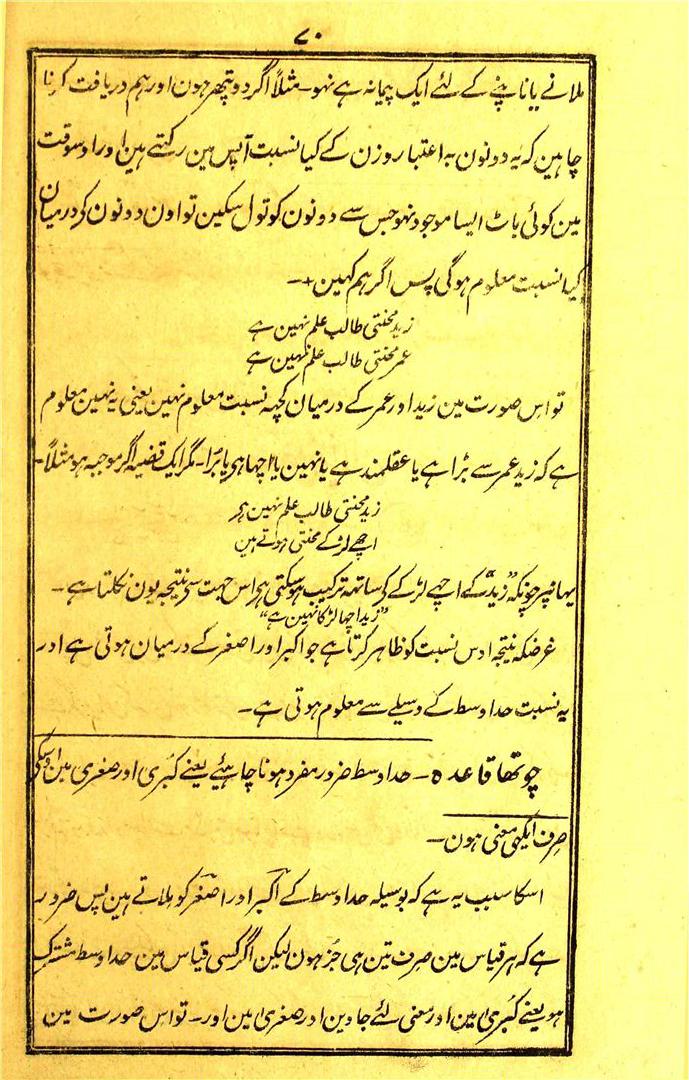 ۷۰
ملانے یا ناپنے کے لئے ایک پیمانہ ہے نہو۔ مثلاً اگر دو پتھر ہون اور ہم دریافت کرنا
چاہین کہ یہ دونون بہ اعتبار وزن کے کیا نسبت آپس مین رکھتے ہین اور اوسوقت
مین کوئی باٹ ایسا موجود نہو جس سے دونون کو تول سکین تو اون دونون کے درمیان
کیا نسبت معلوم ہوگی پس اگر ہم کہین +۔
زید محنتی طالب علم نہین ہے
عمر محنتی طالب علم نہین ہے
تو اس صورت مین زید اور عمر کے درمیان کچہہ نسبت معلوم نہین یعنی یہ نہین معلوم
ہے کہ زید عمر سے بڑا ہے یا عقلمند ہے یا نہین یا اچھا ہی یا برا۔ مگر ایک قضیہ اگر موجبہ ہو مثلاً۔
زید محنتی طالب علم نہین ہے
اچھے لڑکے محنتی ہوتے ہین
یہانپر چونکہ "زید" کے اچھے لڑکے کے ساتہہ ترکیب ہو سکتی ہی اس جہت سے نتیجہ یون نکلتا ہے۔
"زید اچھا لڑکا نہین ہے"
غرضکہ نتیجہ اوس نسبت کو ظاہر کرتا ہے جو اکبر اور اصغر کے درمیان ہوتی ہے اور
یہ نسبت حد اوسط کے وسیلے سے معلوم ہوتی ہے۔
چوتھا قاعدہ۔ حد اوسط ضرور مفرد ہونا چاہیئے یعنے کبری اور صغری مین اوسکی
صرف ایکہی معنی ہون۔
اسکا سبب یہ ہے کہ بوسیلہ حد اوسط کے اکبر اور اصغر کو ملاتے ہین پس ضرور
ہے کہ ہر قیاس مین صرف تین ہی جز ہون لیکن اگر کسی قیاس مین حد اوسط مشترک
ہو یعنے کبریٰ مین اور معنی لئے جاوین اور صغریٰ مین اور۔ تو اس صورت مین